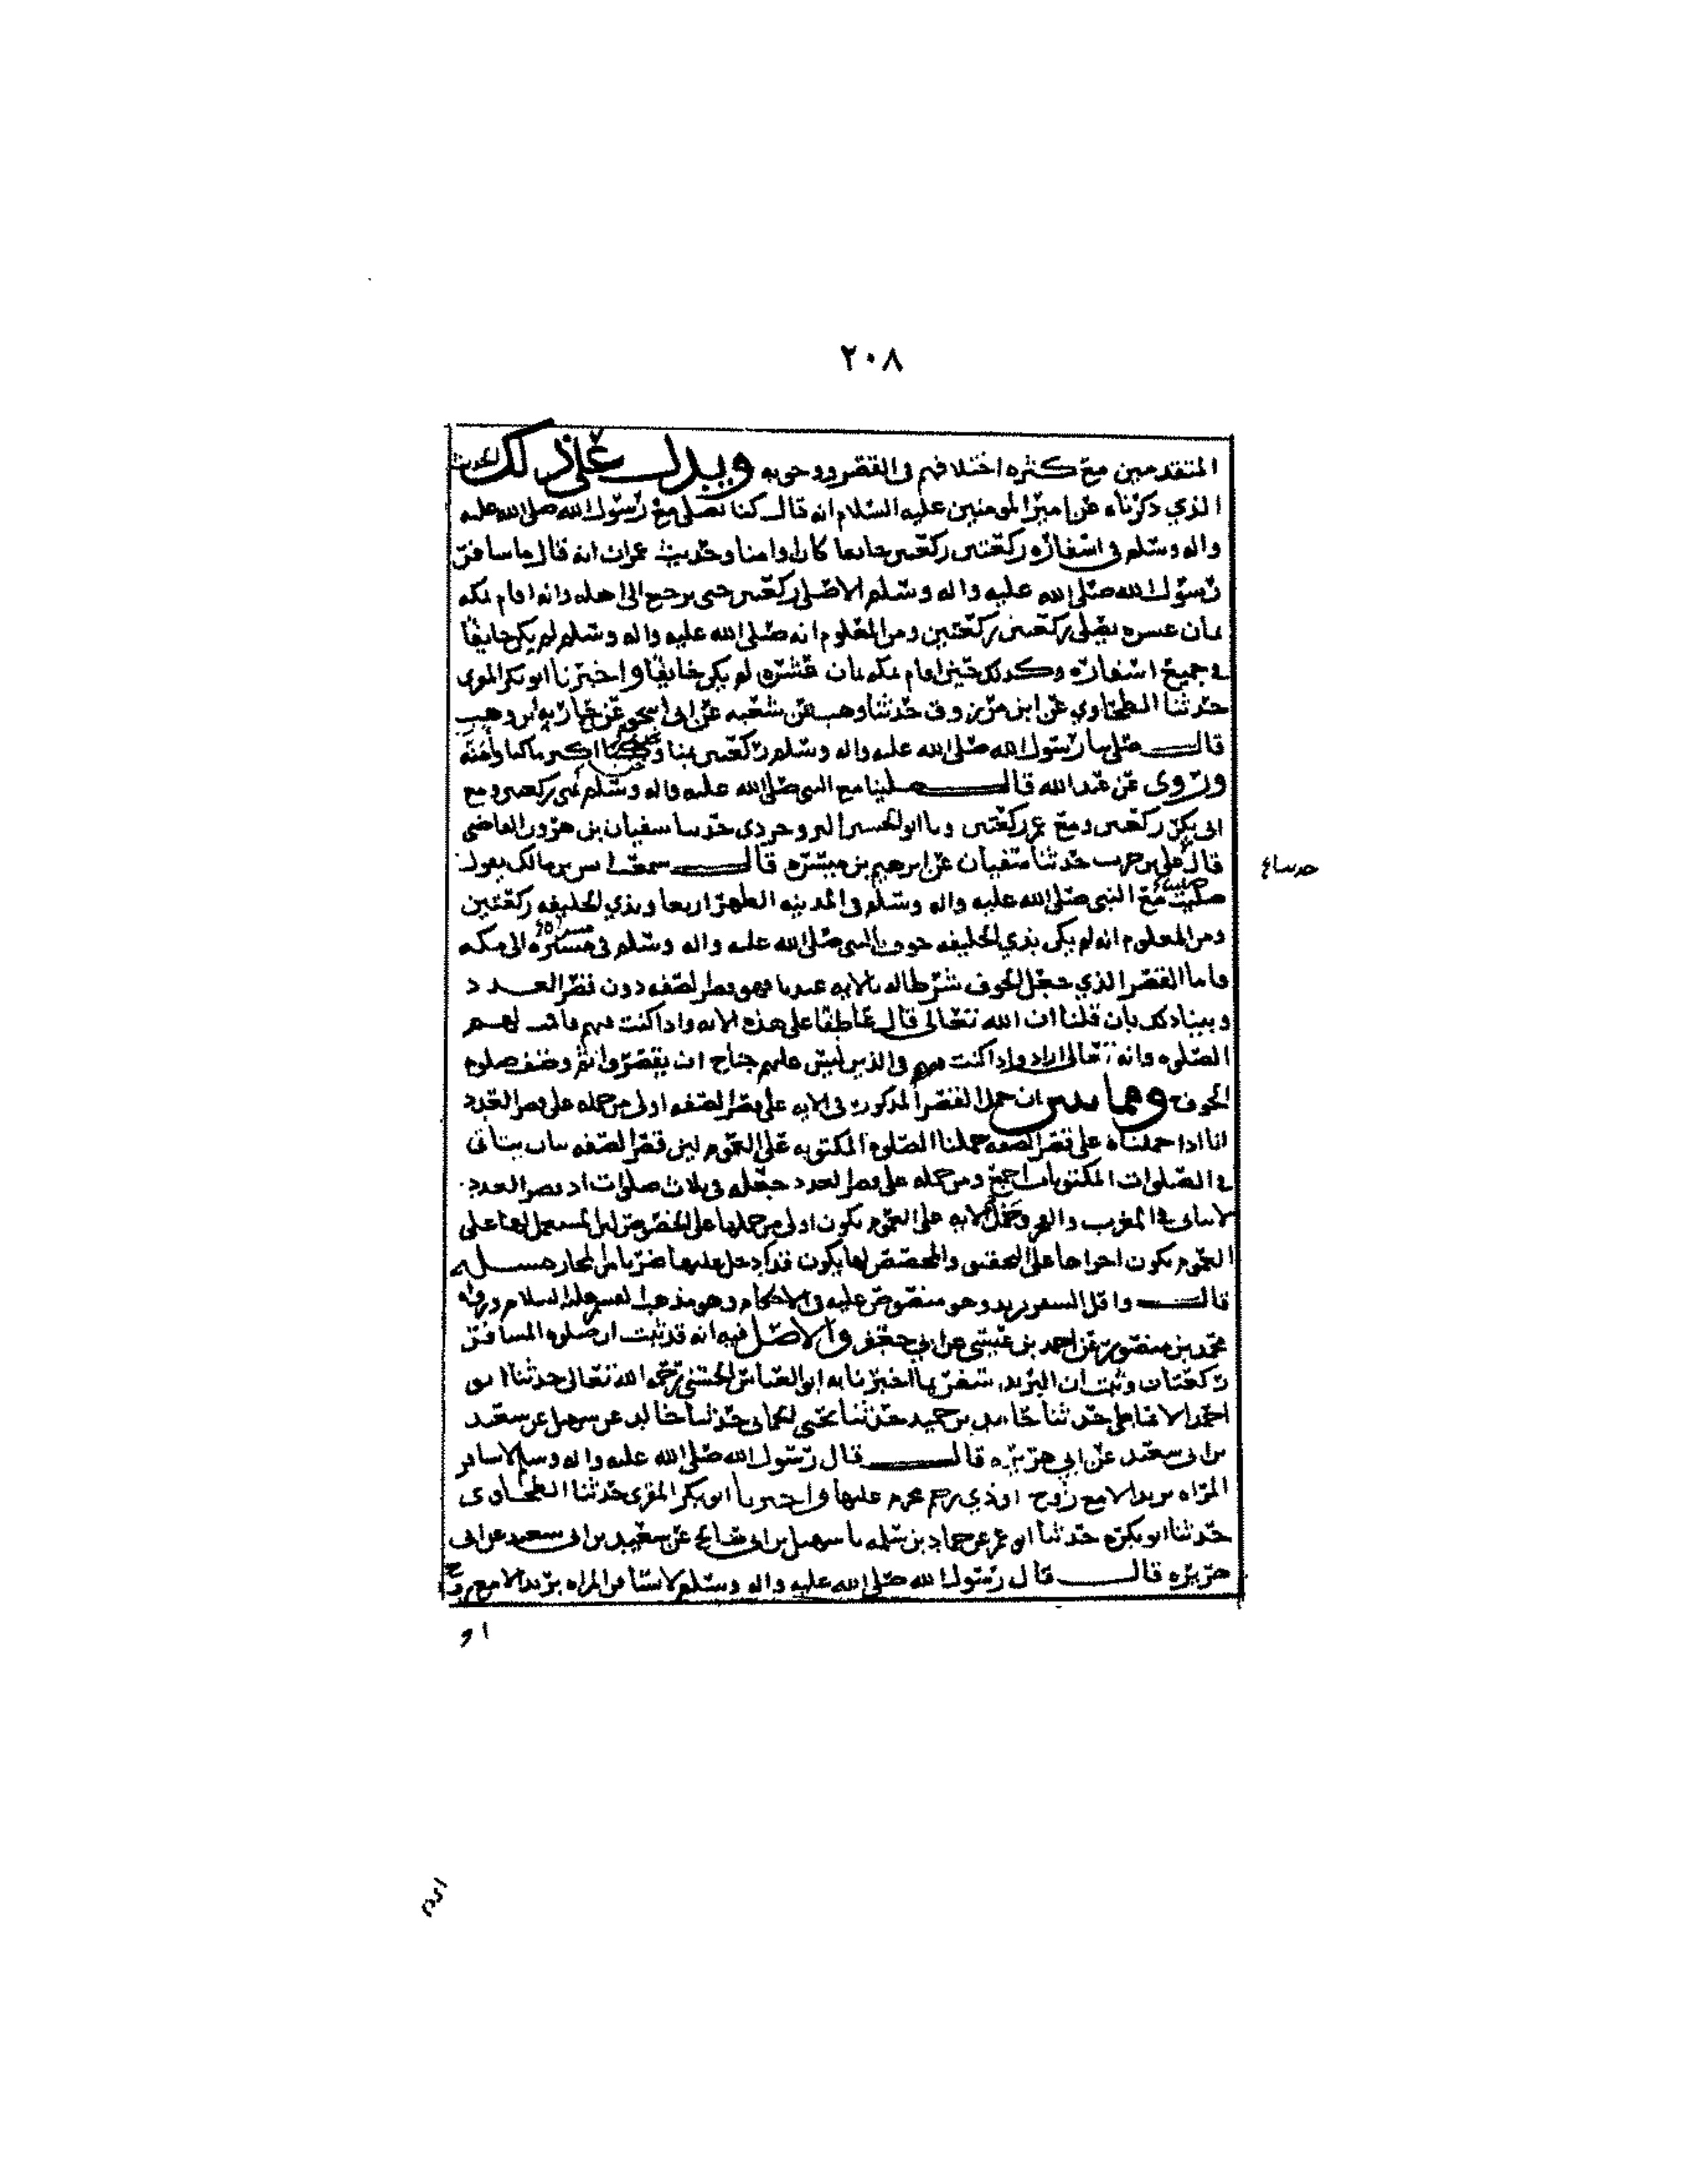 ٢٠٨
المتقدمين مع كثره اختلافهم فى القصر ووجوبه ويدل على ذلك الحديث
الذي ذكرناه عن امير المومنين عليه السلام انه قال كنا نصلى مع رسول الله صلى الله عليه
واله وسلم فى اسفاره ركعتين ركعتين خايفا كان او امنا وحديث عمران انه قال ما سافر
رسول الله صلى الله عليه واله وسلم الا صلى ركعتين حتى يرجع الى اهله وانه اقام بمكه
ثمان عشره يصلى ركعتين ركعتين ومن المعلوم انه صلى الله عليه واله وسلم لم يكن خايفا
فى جميع اسفاره وكذلك حين اقام بمكه ثمان عشره لم يكن خايفا واخبرنا ابو بكر المقري
حدثنا الطحاوي عن ابن مرزوق حدثنا وهب عن شعبه عن ابى اسحق عن حارثه بن وهب
قال صلى بنا رسول الله صلى الله عليه واله وسلم ركعتين بمنا ونحن اكثر ما كنا وآمنه
وروى عن عبد الله قال صلينا مع النبي صلى الله عليه واله وسلم بمنى ركعتين ومع
ابى بكر ركعتين ومع عمر ركعتين وبا ابو الحسين البروجردى حدثنا سفيان بن هرون القاضى
قال على بن حرب حدثنا سفيان عن ابرهيم بن ميسره قال سمعت انس بن مالك يقول
حدثنا ع
صليت مع النبي صلى الله عليه واله وسلم فى المدينه الظهر اربعا وبذي الحليفه ركعتين
ومن المعلوم انه لم يكن بذي الحليفه خوف بالنبي صلى الله عليه واله وسلم فى مسيره الى مكه
فاما القصر الذي جعل الخوف شرطا له بالايه عندنا فهو قصر الصفه دون قصر العدد
وبينا ذلك بان قلنا ان الله تعالى قال عاطفا على هذه الايه واذا كنت فيهم فاقمت لهم
الصلوه وانه تعالى اراد واذا كنت فيهم فى الذين ليس عليهم جناح ان يقصروا ثم وصف صلوه
الخوف ومما يبين ان حمل القصر المذكور فى الايه على قصر الصفه اولى من حمله على قصر العدد
انا اذا حملناه على قصر الصفه حملنا الصلوه المكتوبه على العموم لين قصر الصفه يتاتى
فى الصلوات المكتوبات اجمع ومن حمله على قصر العدد جعله فى ثلاث صلوات اذ قصر العدد
لا يتاتى فى المغرب والفجر وحمل الايه على العموم يكون اولى من حملها على الخصوص لين المستعمل لها على
العموم يكون اجراها على التحقيق والمخصص لها يكون قد ادخل عليها ضربا من المجاز مسله
قال واقل السفر بريد وهو منصوص عليه فى الاحكام وهو مذهب القسم عليه السلام ورواه
محمد بن منصور عن احمد بن عيسى عن ابي جعفر والاصل فيه انه قد ثبت ان صلوه المسافر
ركعتان وثبت ان البريد سفر بما اخبرنا به ابو العباس الحسنى رحمه الله تعالى حدثنا ابو
احمد الانماطى حدثنا حامد بن حميد حدثنا يحيى الحمانى حدثنا خالد عن سهيل عن سعيد
بن ابى سعيد عن ابي هريره قال قال رسول الله صلى الله عليه واله وسلم لا تسافر
المراه بريدا الا مع زوج او ذي رحم محرم عليها واخبرنا ابو بكر المقري حدثنا الطحاوى
حدثنا ابو بكره حدثنا ابو عمر عن حماد بن سلمه با سهيل بن ابى صالح عن سعيد بن ابى سعيد عن ابى
هريره قال قال رسول الله صلى الله عليه واله وسلم لا تسافر المراه بريدا الا مع زوج
او